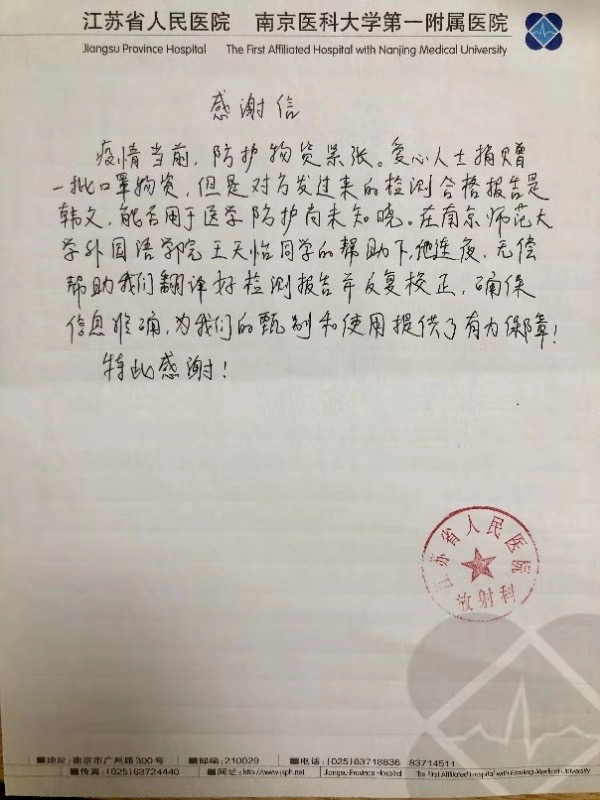 江苏省人民医院 南京医科大学第一附属医院
Jiangsu Province Hospital The First Affiliated Hospital with Nanjing Medical University
感谢信
疫情当前，防护物资紧张。爱心人士捐赠
一批口罩物资，但是对方发过来的检测合格报告是
韩文，能否用于医学防护尚未知晓。在南京师范大
学外国语学院王天怡同学的帮助下，他连夜、无偿
帮助我们翻译好检测报告并反复校正，确保
信息准确，为我们的甄别和使用提供了有力保障！
特此感谢！
江苏省人民医院
放射科
地址：南京市广州路300号 邮编：210029 电话：(025)83718836 83714511
传真：(025)83724440 网址：http://www.jsph.net Jiangsu Province Hospital The First Affiliated Hospital with Nanjing Medical University